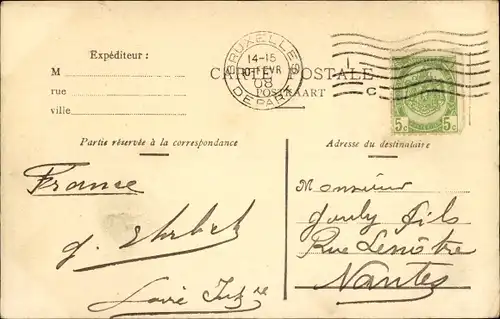 Expéditeur :
M
rue
ville
BRUXELLES
14-15
FEVR
08
DEPART
CARTE POSTALE
POSTKAART
1
C
5c 5c
Partie réservée à la correspondance
Adresse du destinataire
France
Monsieur
fils
Rue Lenôtre
Nantes